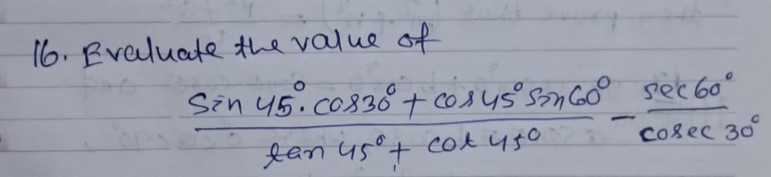 16. Evaluate the value of
sin 45°. cos30° + cos45° sin60° / tan 45° + cot 45° - sec 60° / cosec 30°